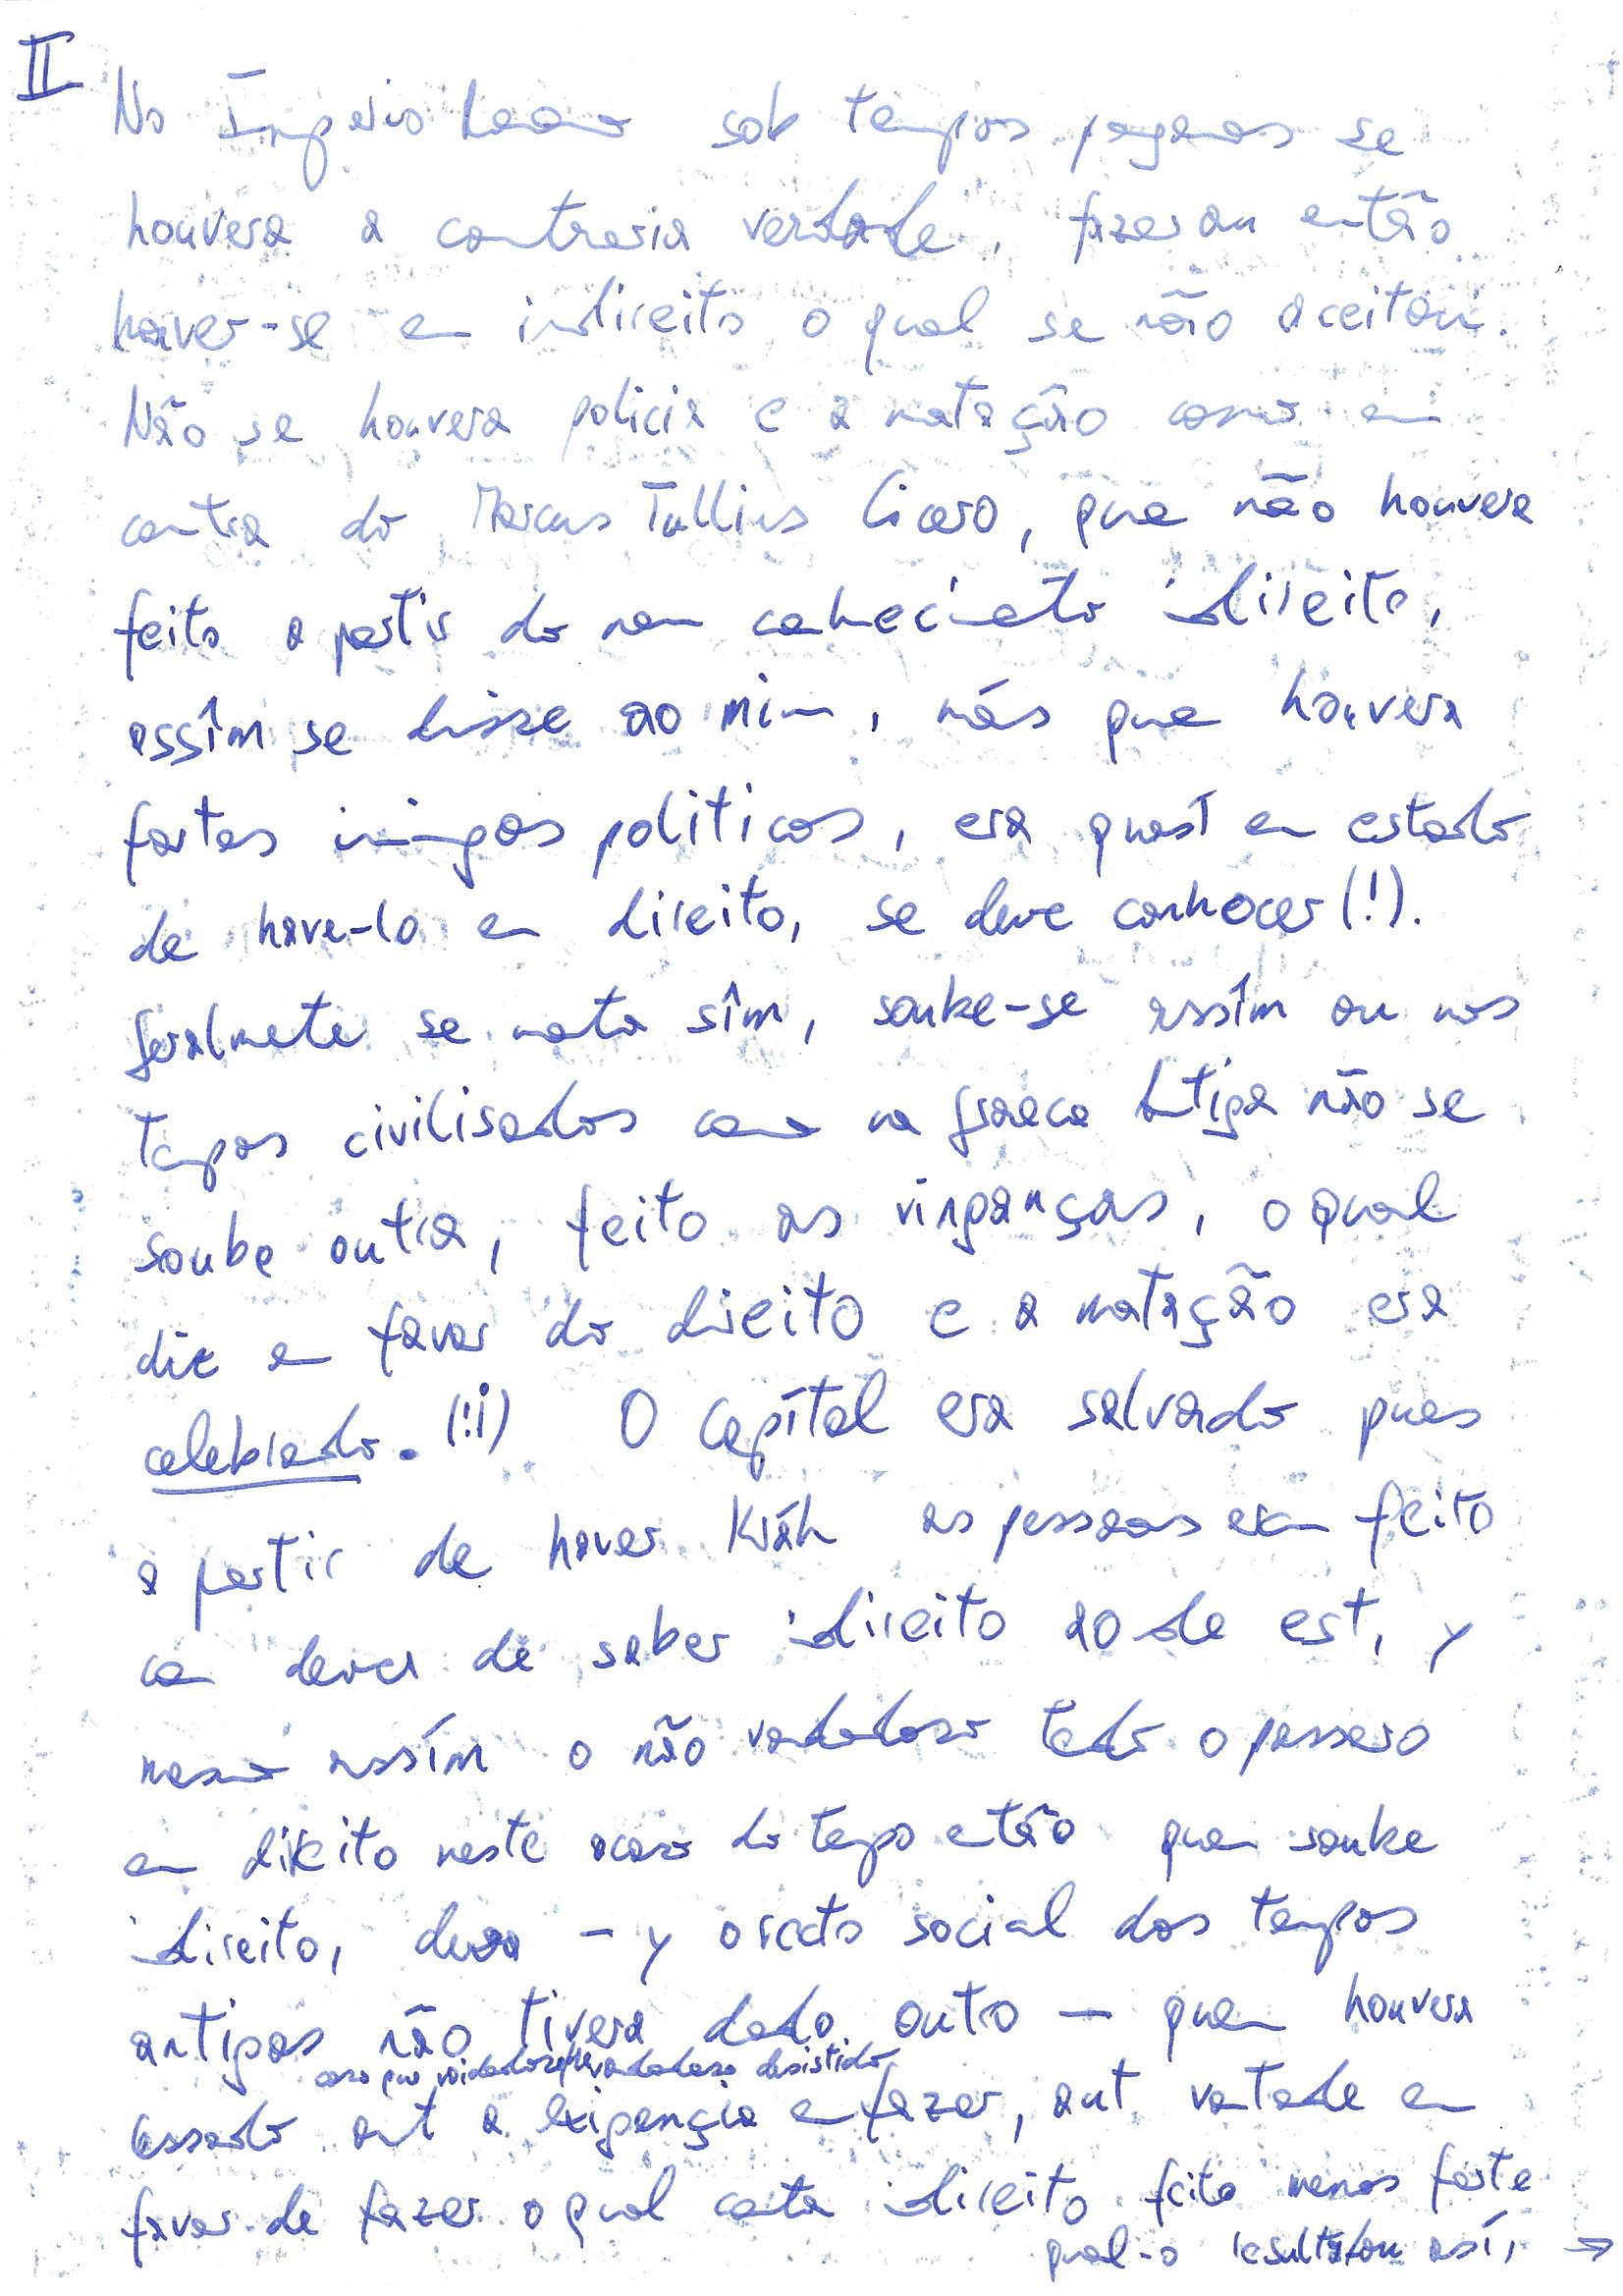 II
No Império sob tempos paganos se
houvera a contraria verdade, fazeran então
haver-se em indireito o qual se não aceitam.
Não se houvera policia e a matação como em
contra do Marcus Tullius Cicero, que não houvera
feito a partir do nem conhecimeto indireito,
assîm se disse ao mim, más que houvera
fortes inimigos politicos, era quasí em estado
de have-lo em direito, se deve conhocer (!).
geralmete se mata sîm, soube-se assîm ou nos
tempos civilisados como na graeca Antiga não se
soube outra, feito as vinganças, o qual
diz em favor do direito e a matação era
celebrado. (!¡) O Capítal era salvado pues
a partir de haver as pessoas eram feito
com dever de saber indireito ao de est, y
mesmo assím o não tedo o passaro
em direito neste acaso do tempo então quem soube
indireito, – y o resto social dos tempos
antigos não tivera dado outo – quem houvera
caso que desistido
cessado aut a exigençia em fazer, aut vontade em
favor de fazer o qual conta indireito feito menos forte
qual-o así, →